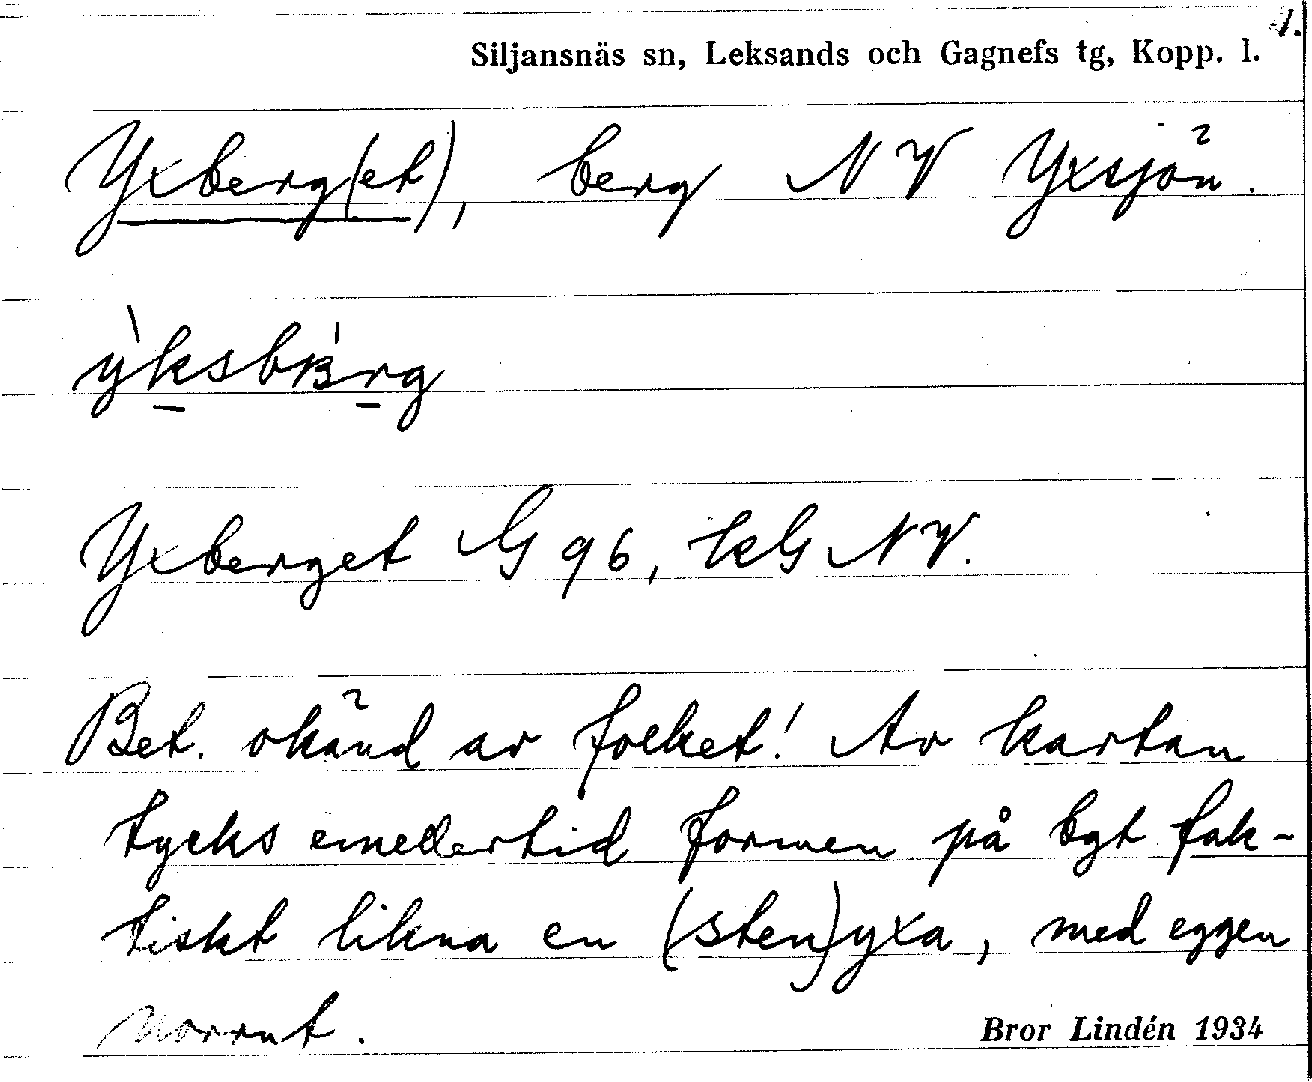 1.
Siljansnäs sn, Leksands och Gagnefs tg, Kopp. l.
Yxberg(et), berg NV Yxsjön.
Yxberget G 96, kG NV.
Bet. okänd av folket! Av kartan
tycks emellertid formen på bgt fak-
tiskt likna en (sten)yxa, med eggen
norrut.
Bror Lindén 1934